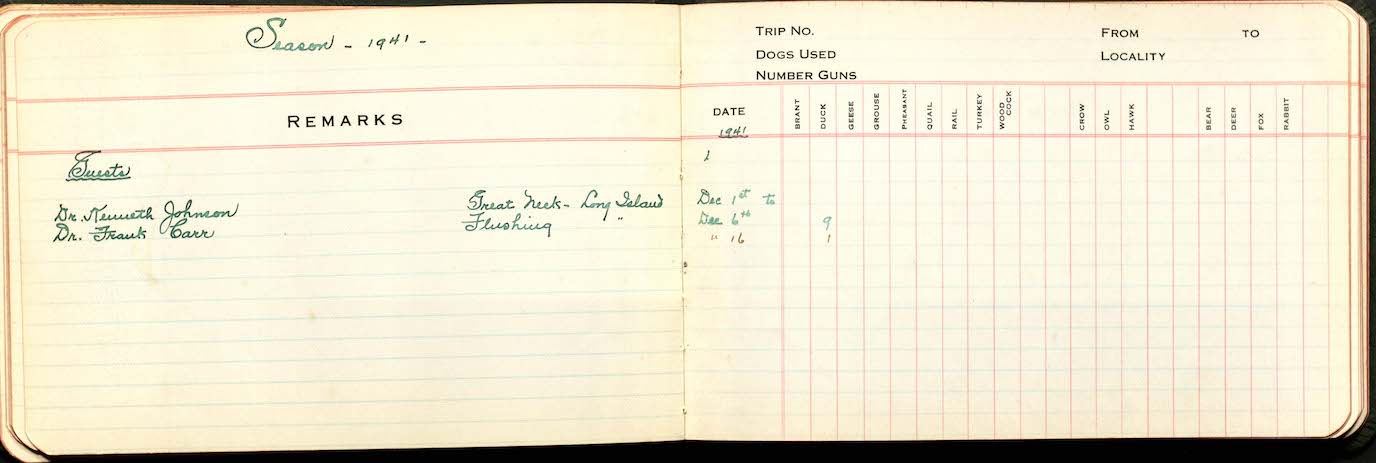 Season - 1941 -
REMARKS
Guests
Dr. Kenneth Johnson Great Neck - Long Island
Dr. Frank Carr Flushing "
TRIP NO. FROM TO
DOGS USED LOCALITY
NUMBER GUNS
DATE BRANT DUCK GEESE GROUSE PHEASANT QUAIL RAIL TURKEY WOOD COCK CROW OWL HAWK BEAR DEER FOX RABBIT
1941
1
Dec 1st to
Dec 6th 9
" 16 1